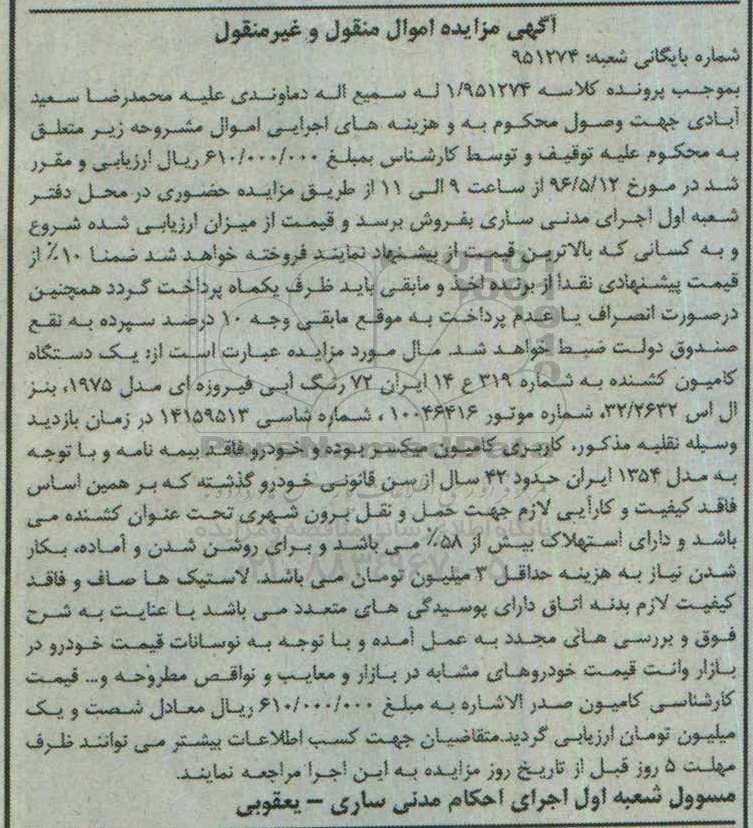 آگهی مزایده اموال منقول و غیرمنقول
شماره بایگانی شعبه: ۹۵۱۲۷۴
بموجب پرونده کلاسه ۱/۹۵۱۲۷۴ له سمیع اله دماوندی علیه محمدرضا سعید
آبادی جهت وصول محکوم به و هزینه های اجرایی اموال مشروحه زیر متعلق
به محکوم علیه توقیف و توسط کارشناس بمبلغ ۶۱۰/۰۰۰/۰۰۰ ریال ارزیابی و مقرر
شد در مورخ ۹۶/۵/۱۲ از ساعت ۹ الی ۱۱ از طریق مزایده حضوری در محل دفتر
شعبه اول اجرای مدنی ساری بفروش برسد و قیمت از میزان ارزیابی شده شروع
و به کسانی که بالاترین قیمت از پیشنهاد نمایند فروخته خواهد شد ضمنا ۱۰٪ از
قیمت پیشنهادی نقدا از برنده اخذ و مابقی باید ظرف یکماه پرداخت گردد همچنین
درصورت انصراف یا عدم پرداخت به موقع مابقی وجه ۱۰ درصد سپرده به نفع
صندوق دولت ضبط خواهد شد. مال مورد مزایده عبارت است از: یک دستگاه
کامیون کشنده به شماره ۳۱۹ ع ۱۴ ایران ۷۲ رنگ آبی فیروزه ای مدل ۱۹۷۵، بنز
ال اس ۳۲/۲۶۳۲، شماره موتور ۱۰۰۴۶۴۱۶ ، شماره شاسی ۱۴۱۵۹۵۱۳ در زمان بازدید
وسیله نقلیه مذکور، کاربری کامیون میکسر بوده و خودرو فاقد بیمه نامه و با توجه
به مدل ۱۳۵۴ ایران حدود ۴۲ سال از سن قانونی خودرو گذشته که بر همین اساس
فاقد کیفیت و کارآیی لازم جهت حمل و نقل برون شهری تحت عنوان کشنده می
باشد و دارای استهلاک بیش از ۵۸٪ می باشد و برای روشن شدن و آماده، بکار
شدن نیاز به هزینه حداقل ۳ میلیون تومان می باشد. لاستیک ها صاف و فاقد
کیفیت لازم بدنه اتاق دارای پوسیدگی های متعدد می باشد با عنایت به شرح
فوق و بررسی های مجدد به عمل آمده و با توجه به نوسانات قیمت خودرو در
بازار وانت قیمت خودروهای مشابه در بازار و معایب و نواقص مطروحه و... قیمت
کارشناسی کامیون صدر الاشاره به مبلغ ۶۱۰/۰۰۰/۰۰۰ ریال معادل شصت و یک
میلیون تومان ارزیابی گردید.متقاضیان جهت کسب اطلاعات بیشتر می توانند ظرف
مهلت ۵ روز قبل از تاریخ روز مزایده به این اجرا مراجعه نمایند.
مسوول شعبه اول اجرای احکام مدنی ساری – یعقوبی